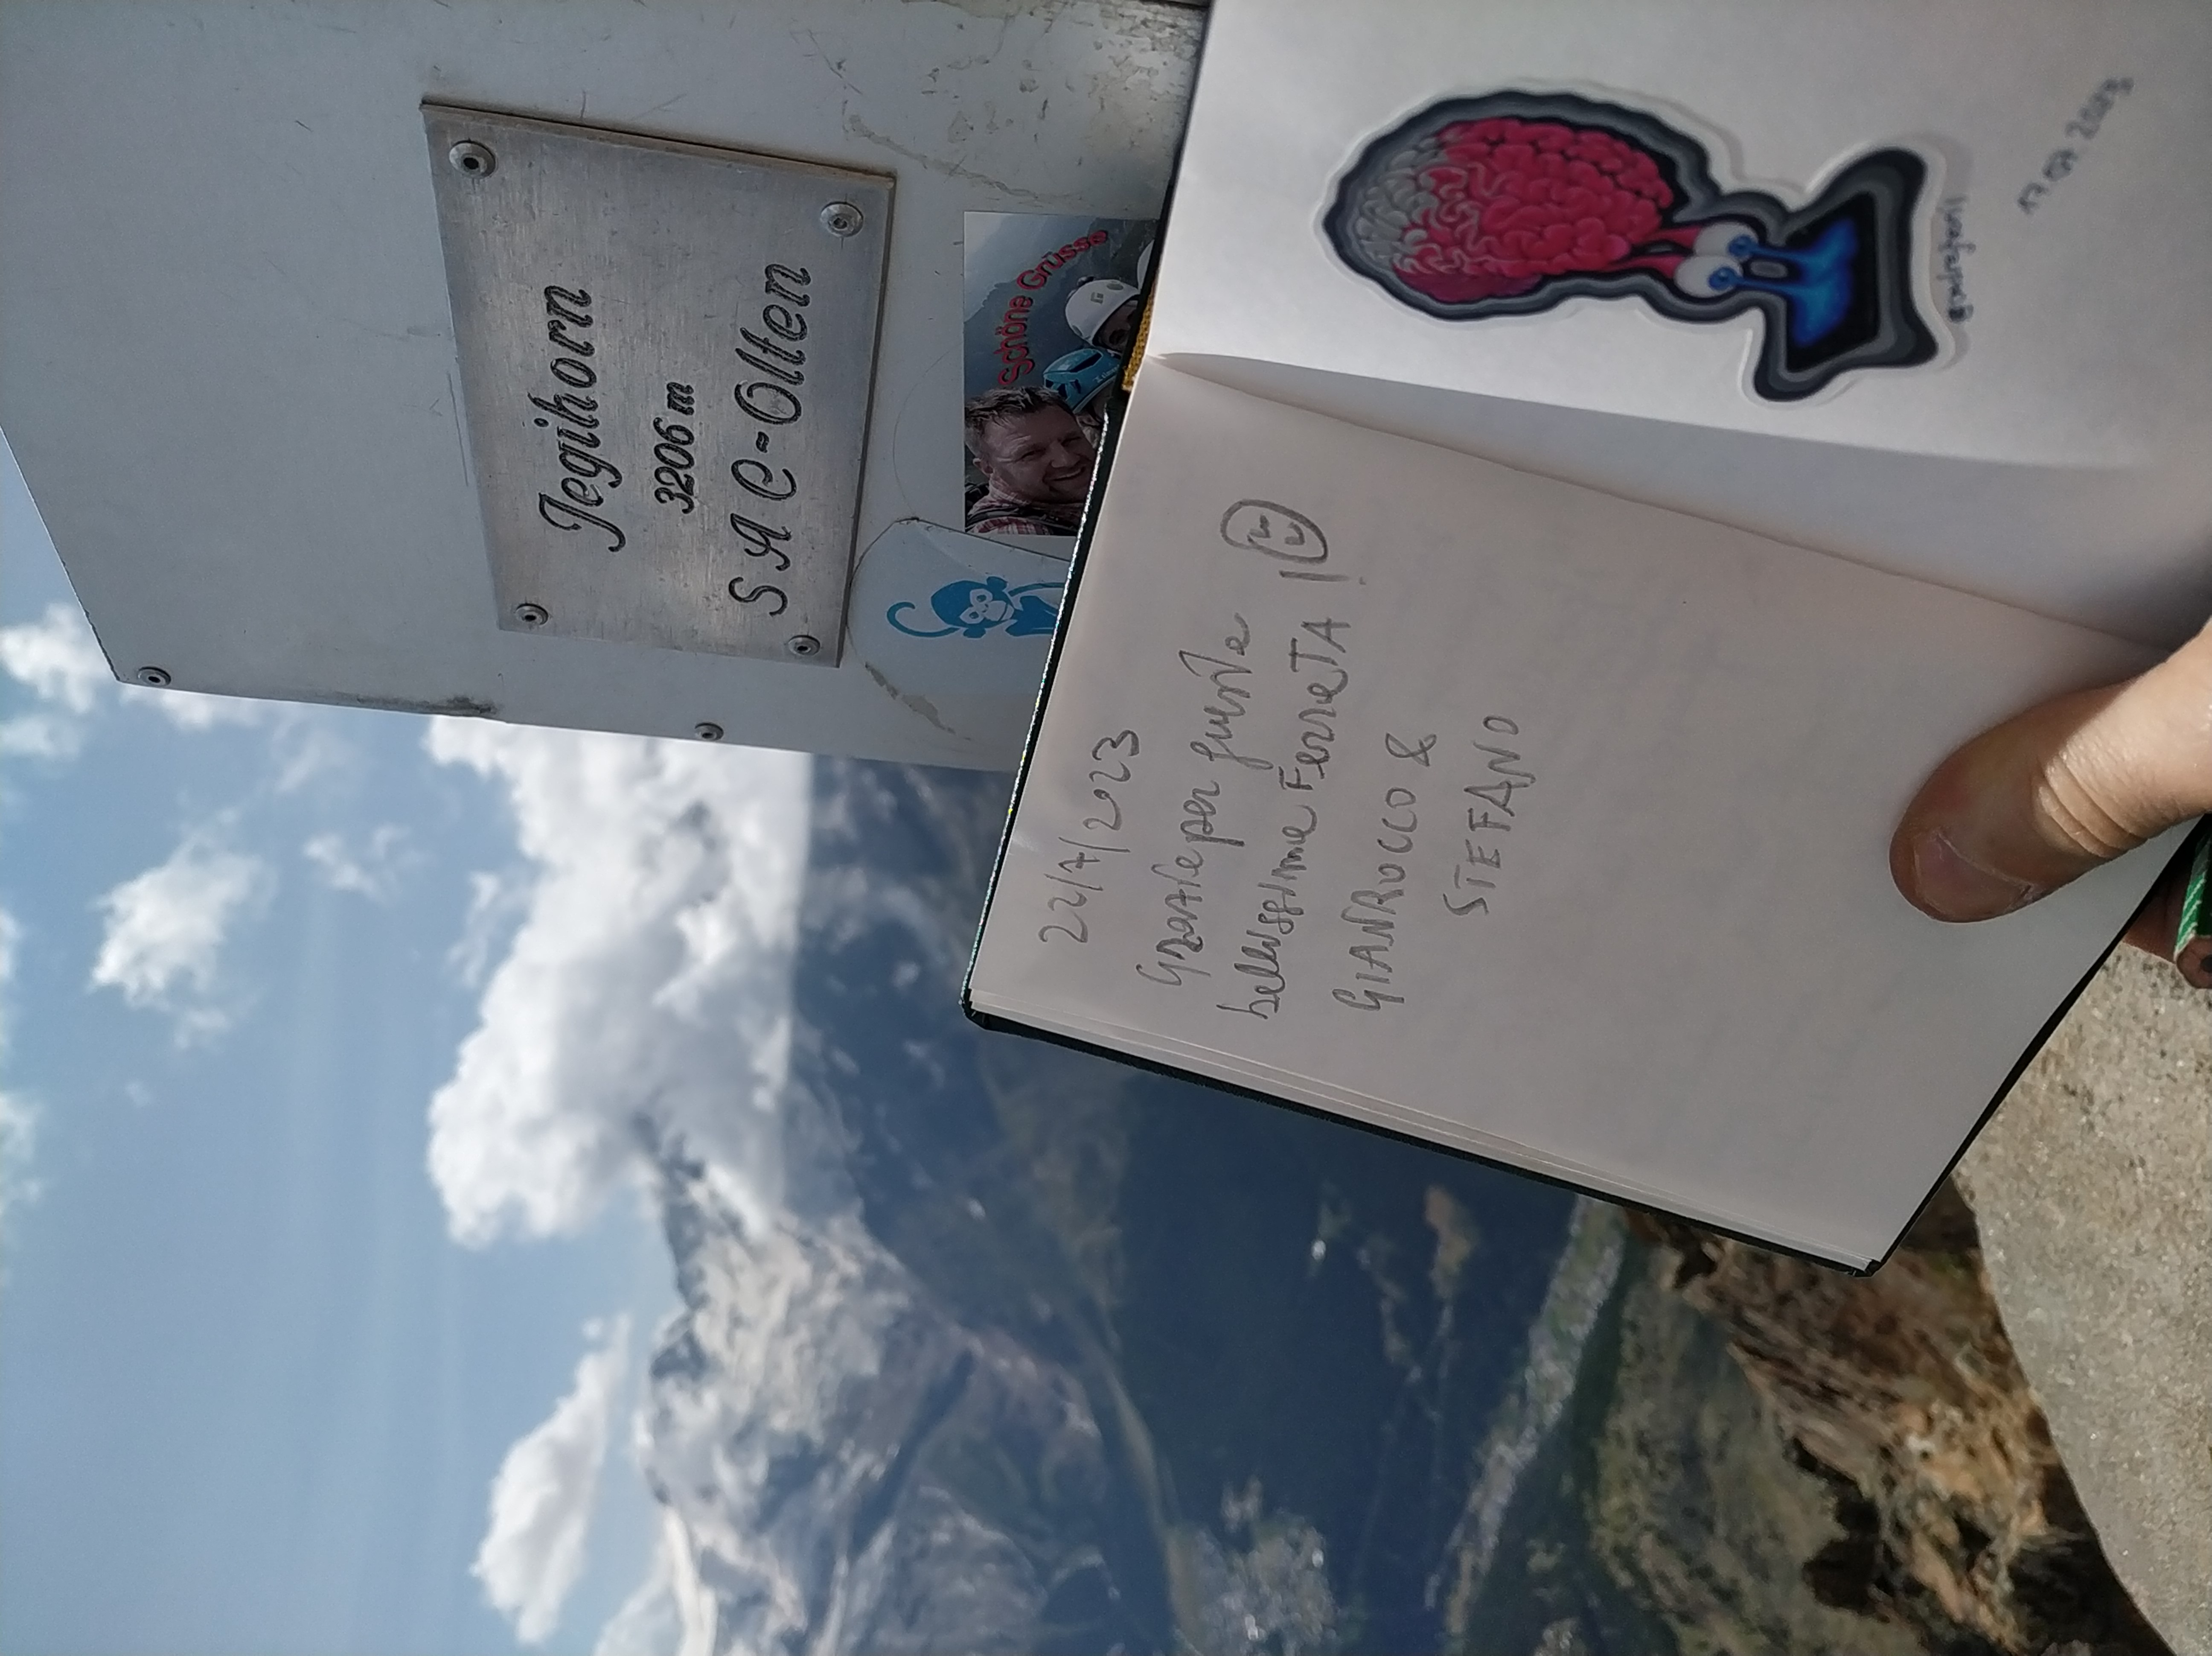 Jegihorn
3206 m
SAC-Olten
Schöne Grüsse
22/7/2023
Grazie per questa
bellissima FerraTA !
GIANROCCO &
STEFANO
17.07.2023